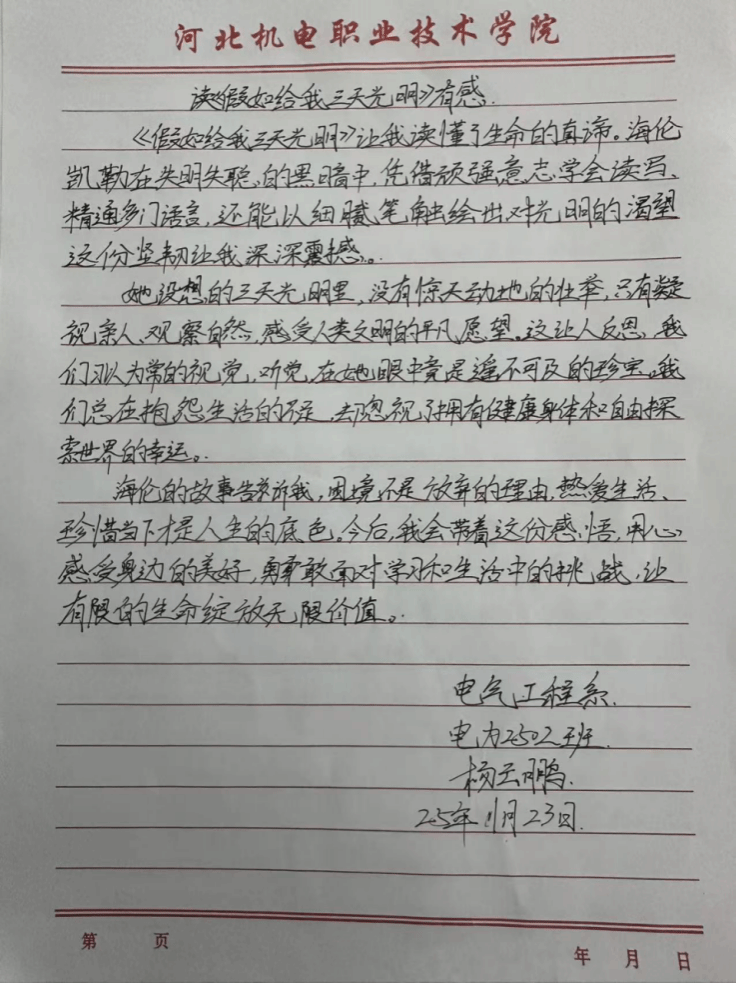 河北机电职业技术学院
读《假如给我三天光明》有感.
《假如给我三天光明》让我读懂了生命的真谛。海伦
凯勒在失明失聪的黑暗中,凭借顽强意志学会读写、
精通多门语言,还能以细腻笔触绘出对光明的渴望
这份坚韧让我深深震撼。
她设想的三天光明里,没有惊天动地的壮举,只有凝
视亲人、观察自然,感受人类文明的平凡愿望。这让人反思,我
们习以为常的视觉,听觉,在她眼中竟是遥不可及的珍宝。我
们总在抱怨生活的不足,却忽视了拥有健康身体和自由探
索世界的幸运。
海伦的故事告诉我,困境不是放弃的理由,热爱生活、
珍惜当下才是人生的底色。今后,我会带着这份感悟,用心
感受身边的美好,勇敢面对学习和生活中的挑战,让
有限的生命绽放无限价值。
电气工程系.
电力2502班.
杨云鹏.
25年11月23日.
第 页
年 月 日